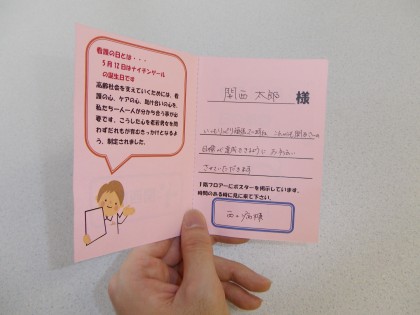 看護の日とは・・・
5月12日はナイチンゲール
の誕生日です
高齢社会を支えていくためには、看
護の心、ケアの心、助け合いの心を、
私たち一人一人が分かち合う事が必
要です。こうした心を老若男女を問
わずだれもが育むきっかけとなるよ
う、制定されました。
関西 太郎 様
目標が達成できるように お手伝い
させていただきます
1階フロアーにポスターを掲示しています。
時間のある時に見に来て下さい。
西の病棟